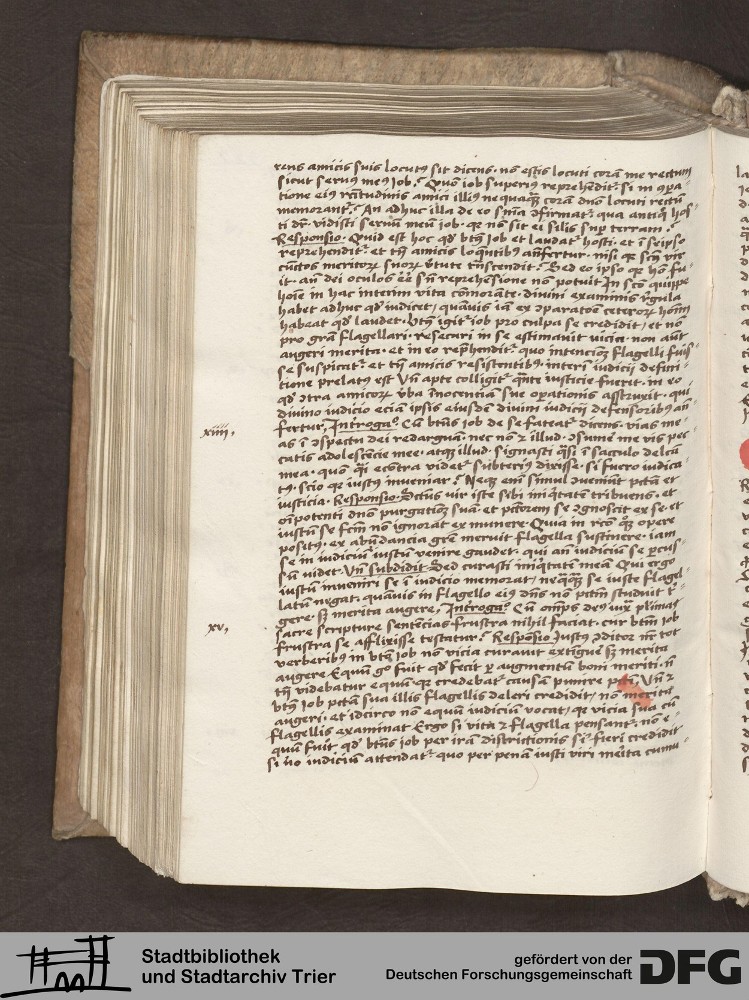 rens amicis suis locutꝰ sit dicens. nō estis locuti corā me rectum
sicut seruꝰ meꝰ Job. Quō iob superiꝰ reprehēdit si in
tione eiꝰ amici illiꝰ neq̄quā corā dn̄o locuti rectū
memorant᷑. An adhuc illa de eo sn̄ia ↄfirmat᷑. qua antiqꝰ hos
ti dr̄. vidisti seruū meū iob. qꝫ nō sit ei silis sup terram.
Responsio. Quid est hoc qd̓ btūs Job et laudat᷑ hosti. et ī seipso
reprehendit᷑. et tn̄ amicis loquētibꝰ an̄fertur. nisi
cūctos meritoꝝ suoꝝ v̓tute trāscendit. Sed eo ipso qꝫ hō fu
it. an̄ dei oculos sn̄ reprehēsione nō potuit. In scō quippe
hoīe in hac interim vita cōmorāte. diuini examinis r̓gula
habet adhuc qd̓ iudicet, quāuis iā ex ↄparatōe ceteroꝝ hoīm
habeat qd̓ laudet. btūs igit᷑ iob pro culpa se credidit, et nō
pro grā flagellari. resecari in se estimauit vicia. non aūt
augeri merita. et in eo rep̄hendit᷑. quo intencioꝫ flagelli fuiss
se suspicat᷑. et tn̄ amicis resistentibꝰ. interī iudicii defini
tione prelatꝰ est Vn̄ apte colligit᷑ q̄nte iusticie fuerit. in eo
qd̓ ↄtra amicoꝝ v̓ba īnocentiā sue opationis asstruxit. qui
diuino iudicio eciā ipsis eiusdē diuini iudicii defensoribꝰ an̄
fertur, Introgaᵒ. Cū btūs iob de se fateat᷑ dicens. vias me
as ī ↄspectu dei redarguā. nec nō ⁊ illud. ↄsumē me vis pec
catis adolescēcie mee. atqꝫ illud. signasti q̄si ī sacculo delcā
mea. quō q̄si ecōtra videt᷑ subteriꝰ dixisse. si fuero iudica
tꝰ. scio qꝫ iustꝰ inueniar. Neqꝫ enī simul ↄueniūt pctā et
iusticia. Responsio. Sctūs vir iste sibi iniq̓tatē tribuens. et
oīpotenti dn̄o purgatioꝫ suā. et pctōrem se ↄgnoscit ex se. et
iustū se fcm̄ nō ignorat ex munere. Quia in opere
positꝰ. ex abūdancia grē meruit flagella sustinere. iam
se in iudiciū iustū venire gaudet. qui an̄ iudiciū se
sū videt. Vn̄ subdidit. Sed curasti iniq̓tatē meā Qui ergo
iustū inueniri se ī iudicio memorat, neq̄ꝫ se iuste flagel
latū negat. quāuis in flagello eiꝰ dn̄s nō pctm̄ studuit
gere. sꝫ merita augere, Introgaᵒ. Cū om̄ps deꝰ
sacre scripture sentēcias. frustra nihil faciat. cur btm̄ iob
frustra se afflixisse testatur. Responsio. Justꝰ ↄditoꝝ nr̄ tot
verberibꝰ in btūꝫ iob nō vicia curauit extiguē sꝫ merita
augere Equū go fuit qd̓ fecit ꝑ augmentū boni meriti. n̄
tn̄ videbatur equū. qꝫ credebat᷑ causam punire pctī. Vn̄ ⁊
btūs iob pctm̄ sua illis flagellis deleri credidit, nō merita
augeri. et idcirco nō equū iudiciū vocat, qꝫ vicia sua cū
flagellis examinat Ergo si vitā ⁊ flagella pensant᷑. nō e
quū fuit qd̓ btūs iob per irā districtionis si fieri credidit
si v̓o iudiciū attendat᷑. quo per penā iusti viri meritā cumu
xiiij.
xv,
Stadtbibliothek
und Stadtarchiv Trier
gefördert von der
Deutschen Forschungsgemeinschaft
DFG